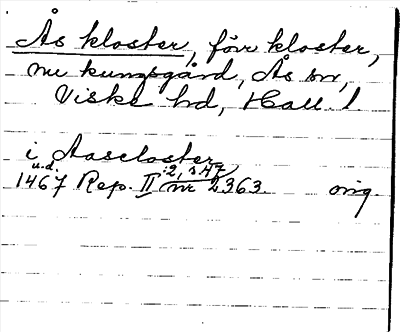 Ås kloster, förr kloster,
nu kungsgård, Ås sn,
Viske hd, Hall. l.
i Aascloster
u.d. :2, s. 47
1467 Rep. II nr 2363. orig.